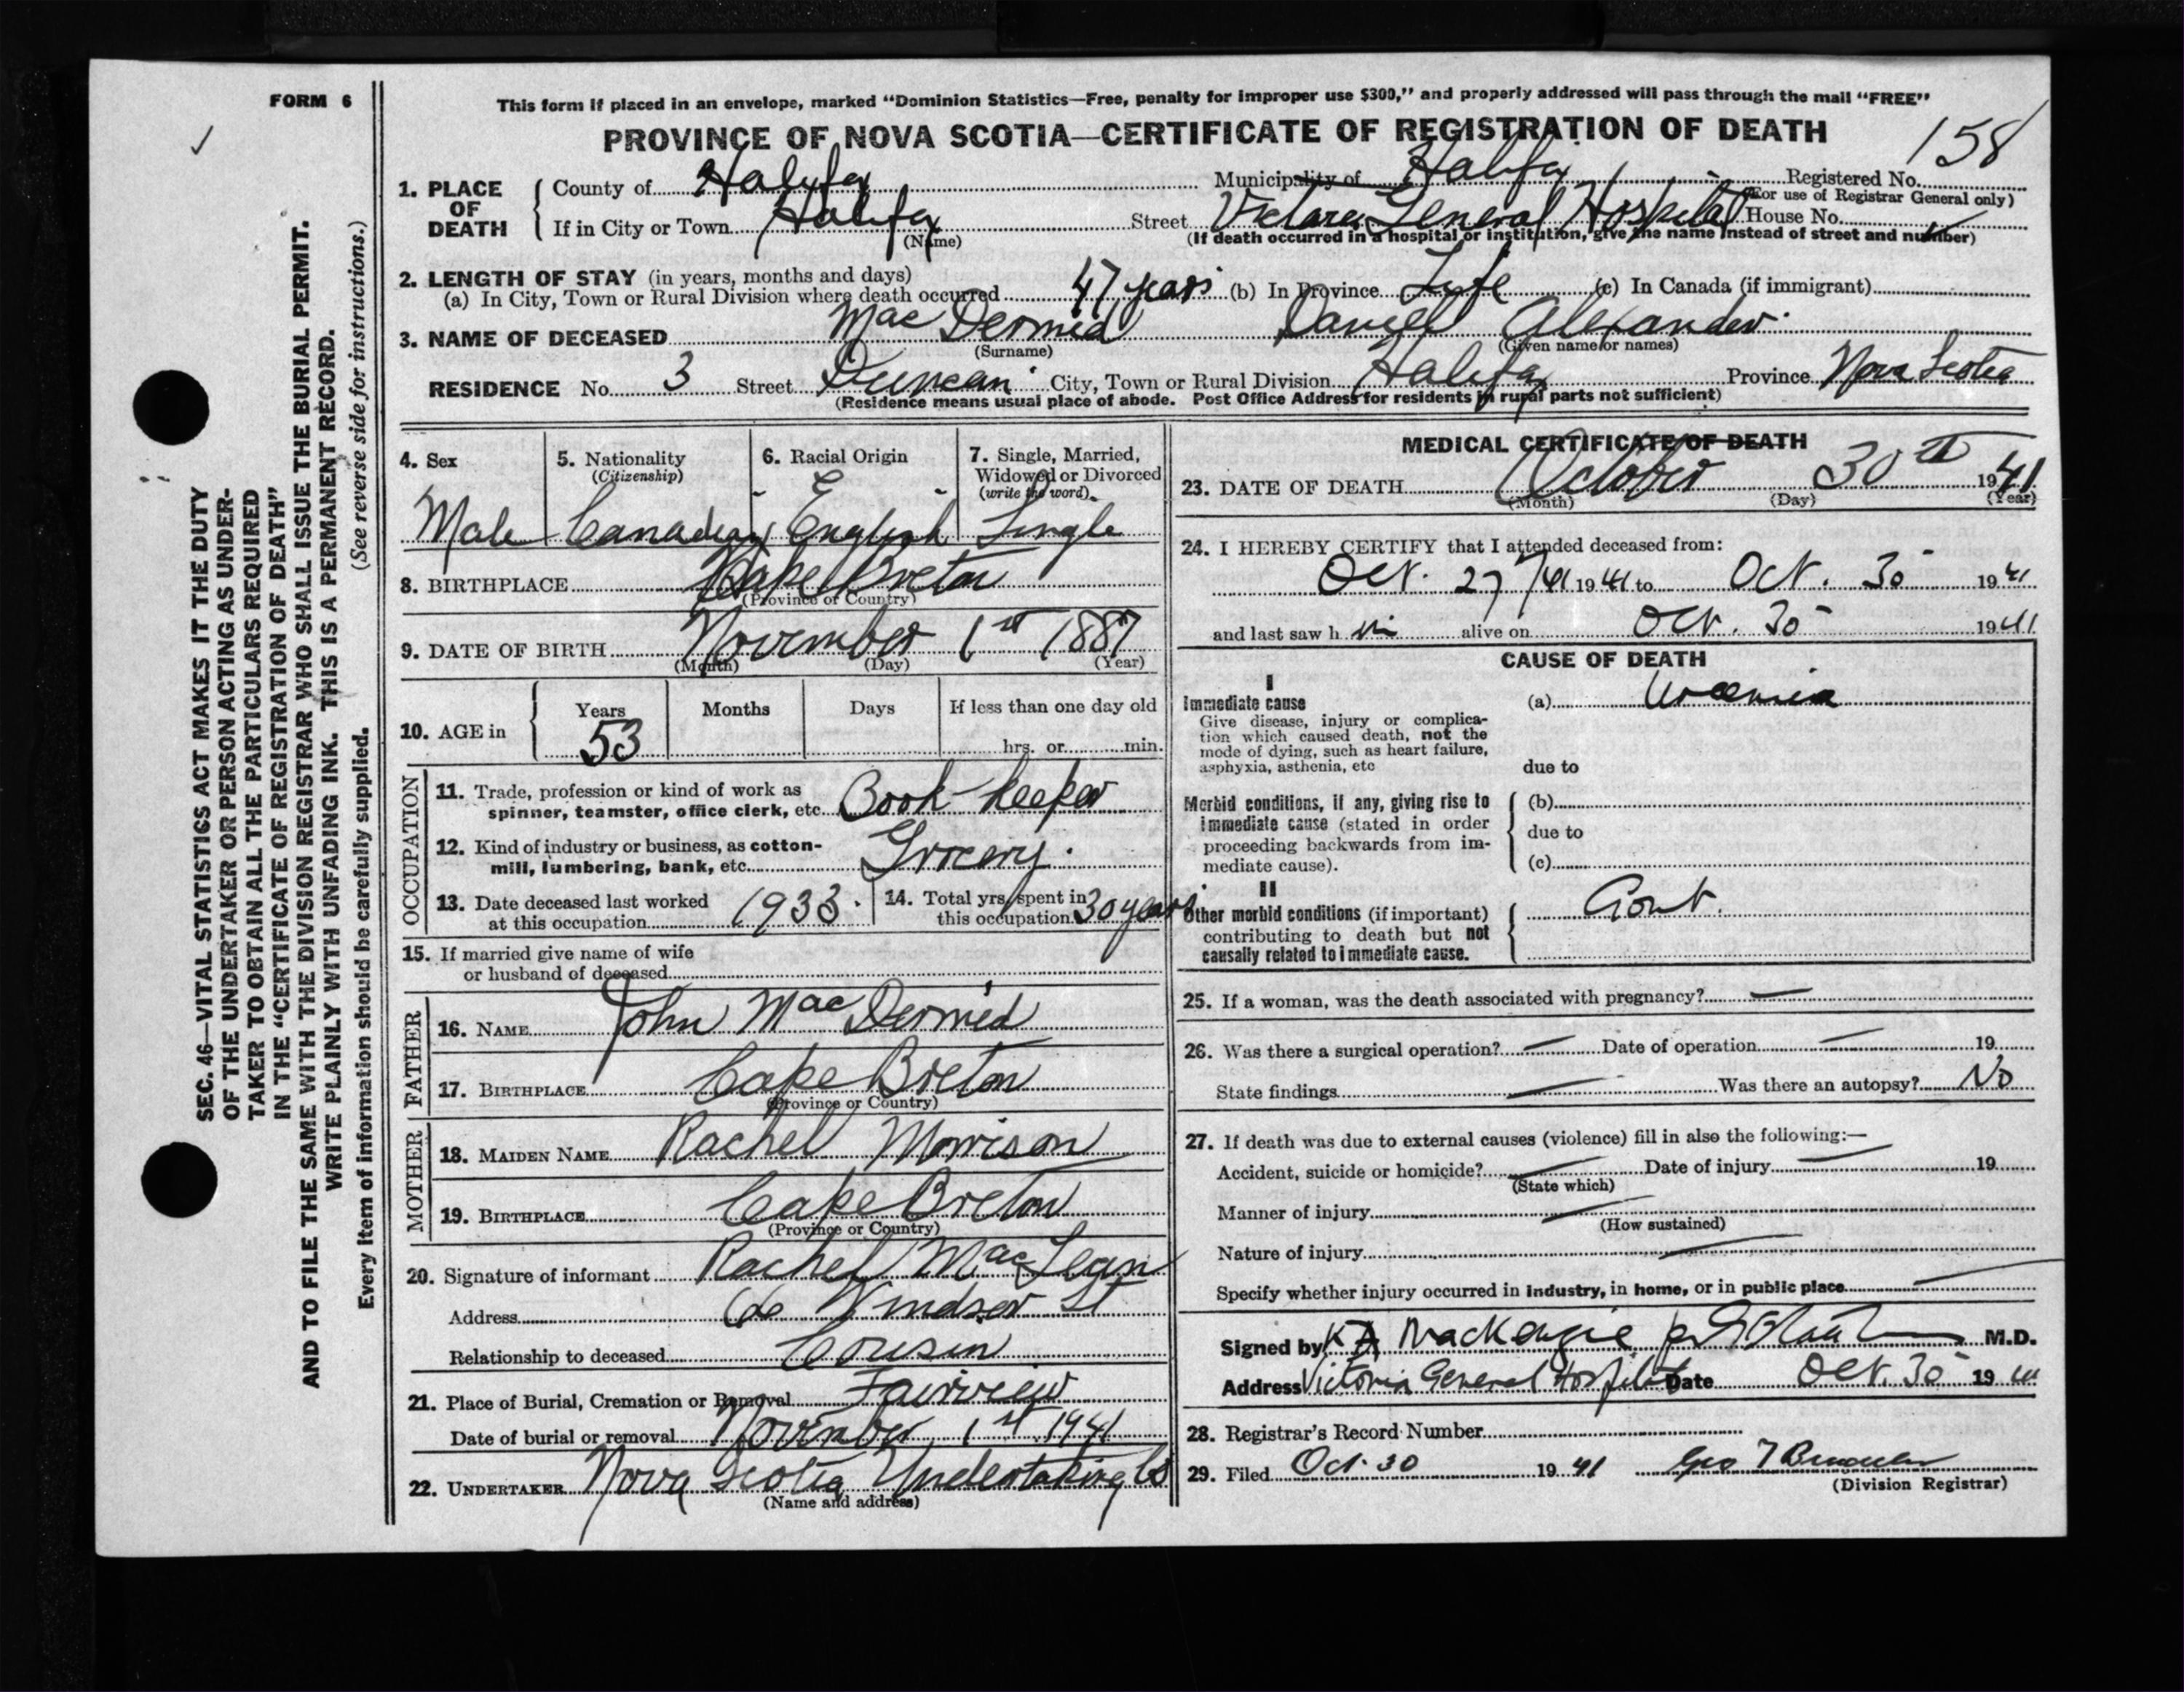 FORM 6
This form if placed in an envelope, marked “Dominion Statistics—Free, penalty for improper use $300,” and properly addressed will pass through the mail “FREE”
PROVINCE OF NOVA SCOTIA—CERTIFICATE OF REGISTRATION OF DEATH
158
1. PLACE OF DEATH
County of Halifax Municipality of Halifax Registered No.
(For use of Registrar General only)
If in City or Town Halifax Street Victoria General Hospital House No.
(Name) (If death occurred in a hospital or institution, give the name instead of street and number)
2. LENGTH OF STAY (in years, months and days)
(a) In City, Town or Rural Division where death occurred 47 years (b) In Province Life (c) In Canada (if immigrant)
3. NAME OF DECEASED MacDermid Daniel Alexander
(Surname) (Given name or names)
RESIDENCE No. 3 Street Duncan City, Town or Rural Division Halifax Province Nova Scotia
(Residence means usual place of abode. Post Office Address for residents in rural parts not sufficient)
4. Sex 5. Nationality (Citizenship) 6. Racial Origin 7. Single, Married, Widowed or Divorced (write the word)
Male Canadian English Single
8. BIRTHPLACE Cape Breton
(Province or Country)
9. DATE OF BIRTH November 1st 1887
(Month) (Day) (Year)
10. AGE in Years Months Days If less than one day old
53 hrs. or min.
OCCUPATION
11. Trade, profession or kind of work as
spinner, teamster, office clerk, etc. Book-keeper
12. Kind of industry or business, as cotton-
mill, lumbering, bank, etc. Grocery.
13. Date deceased last worked
at this occupation 1933.
14. Total yrs. spent in
this occupation 30 years
15. If married give name of wife
or husband of deceased
FATHER
16. NAME John MacDermid
17. BIRTHPLACE Cape Breton
(Province or Country)
MOTHER
18. MAIDEN NAME Rachel Morrison
19. BIRTHPLACE Cape Breton
(Province or Country)
20. Signature of informant Rachel MacLean
Address Windsor St
Relationship to deceased Cousin
21. Place of Burial, Cremation or Removal Fairview
Date of burial or removal November 1st 1941
22. UNDERTAKER Nova Scotia Undertaking Co
(Name and address)
MEDICAL CERTIFICATE OF DEATH
23. DATE OF DEATH October 30th 1941
(Month) (Day) (Year)
24. I HEREBY CERTIFY that I attended deceased from:
Oct. 27/41 1941 to Oct. 30 1941
and last saw him alive on Oct. 30 1941
CAUSE OF DEATH
I
Immediate cause (a) Uraemia
Give disease, injury or complica-
tion which caused death, not the
mode of dying, such as heart failure,
asphyxia, asthenia, etc due to
Morbid conditions, if any, giving rise to (b)
immediate cause (stated in order
proceeding backwards from im- due to
mediate cause). (c)
II
Other morbid conditions (if important) Gout.
contributing to death but not
causally related to immediate cause.
25. If a woman, was the death associated with pregnancy? —
26. Was there a surgical operation? — Date of operation — 19
State findings — Was there an autopsy? No
27. If death was due to external causes (violence) fill in also the following:—
Accident, suicide or homicide? — Date of injury — 19
(State which)
Manner of injury —
(How sustained)
Nature of injury —
Specify whether injury occurred in industry, in home, or in public place —
Signed by K A MacKenzie M.D.
Address Victoria General Hospital Date Oct. 30 1941
28. Registrar's Record Number
29. Filed Oct. 30 1941 Geo
(Division Registrar)
SEC. 46—VITAL STATISTICS ACT MAKES IT THE DUTY
OF THE UNDERTAKER OR PERSON ACTING AS UNDER-
TAKER TO OBTAIN ALL THE PARTICULARS REQUIRED
IN THE “CERTIFICATE OF REGISTRATION OF DEATH”
AND TO FILE THE SAME WITH THE DIVISION REGISTRAR WHO SHALL ISSUE THE BURIAL PERMIT.
WRITE PLAINLY WITH UNFADING INK. THIS IS A PERMANENT RECORD.
Every item of information should be carefully supplied. (See reverse side for instructions.)